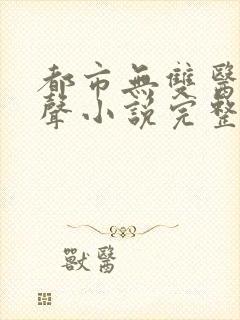 都市無雙醫
聲小説完整
獸醫